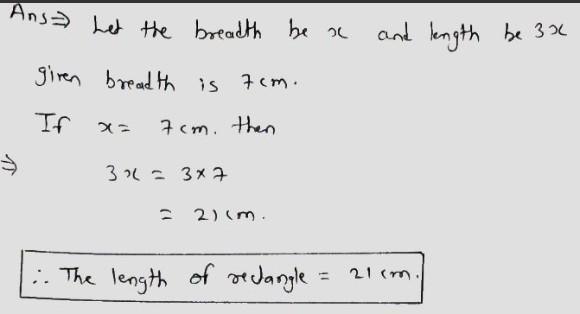 Ans⇒ Let the breadth be x and length be 3x
given breadth is 7cm.
If x = 7cm. then
⇒ 3x = 3×7
= 21cm.
∴ The length of rectangle = 21cm.